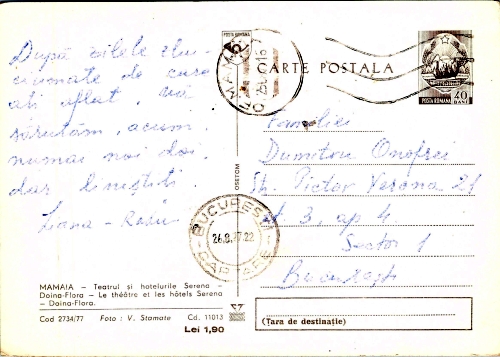 După zilele zbu-
ciumate de care
ați aflat, vă
sărutăm, acum
numai noi doi,
dar liniștiți
Liana - Radu
MAMAIA — Teatrul și hotelurile Serena —
Doina-Flora — Le théâtre et les hôtels Serena
— Doina-Flora.
Cod 2734/77 Foto : V. Stamate Cd. 11013
Lei 1,90
MAMAIA
POSTA ROMANA
OSETCM
BUCUREȘTI
26.8.77.22
CARTARE
CARTE POSTALA
POSTA ROMANA 40 BANI
Familiei
Dumitru Onofrei
Str. Pictor Verona 21
et. 3, ap 4
Sector 1
București
(Țara de destinație)